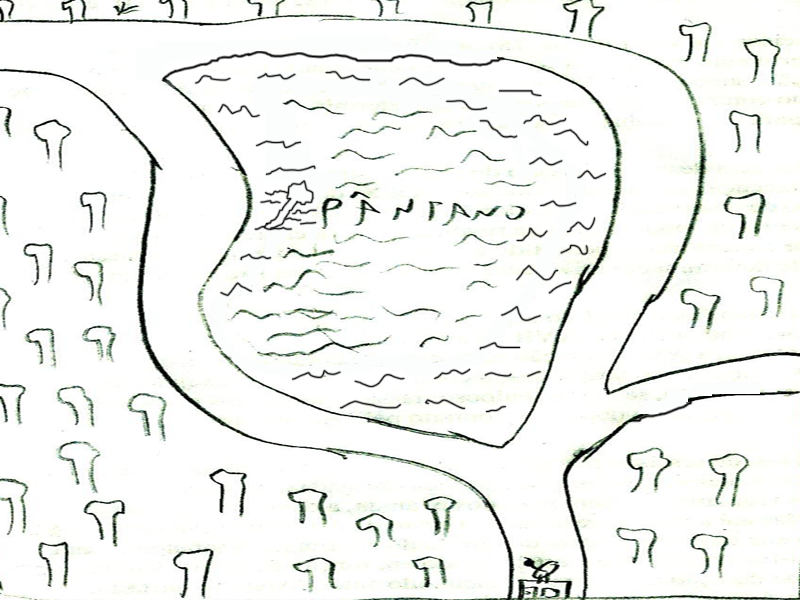 PÂNTANO